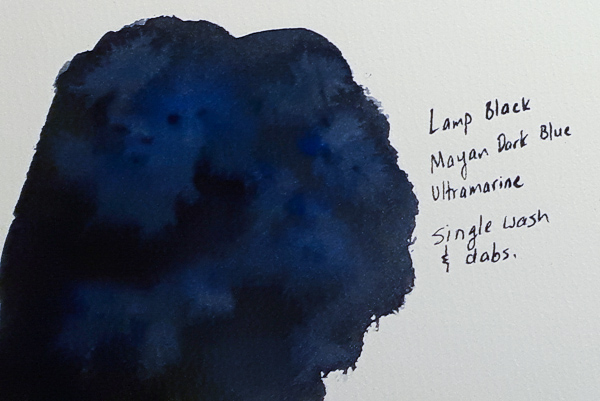 Lamp Black
Mayan Dark Blue
Ultramarine
Single wash
& dabs.